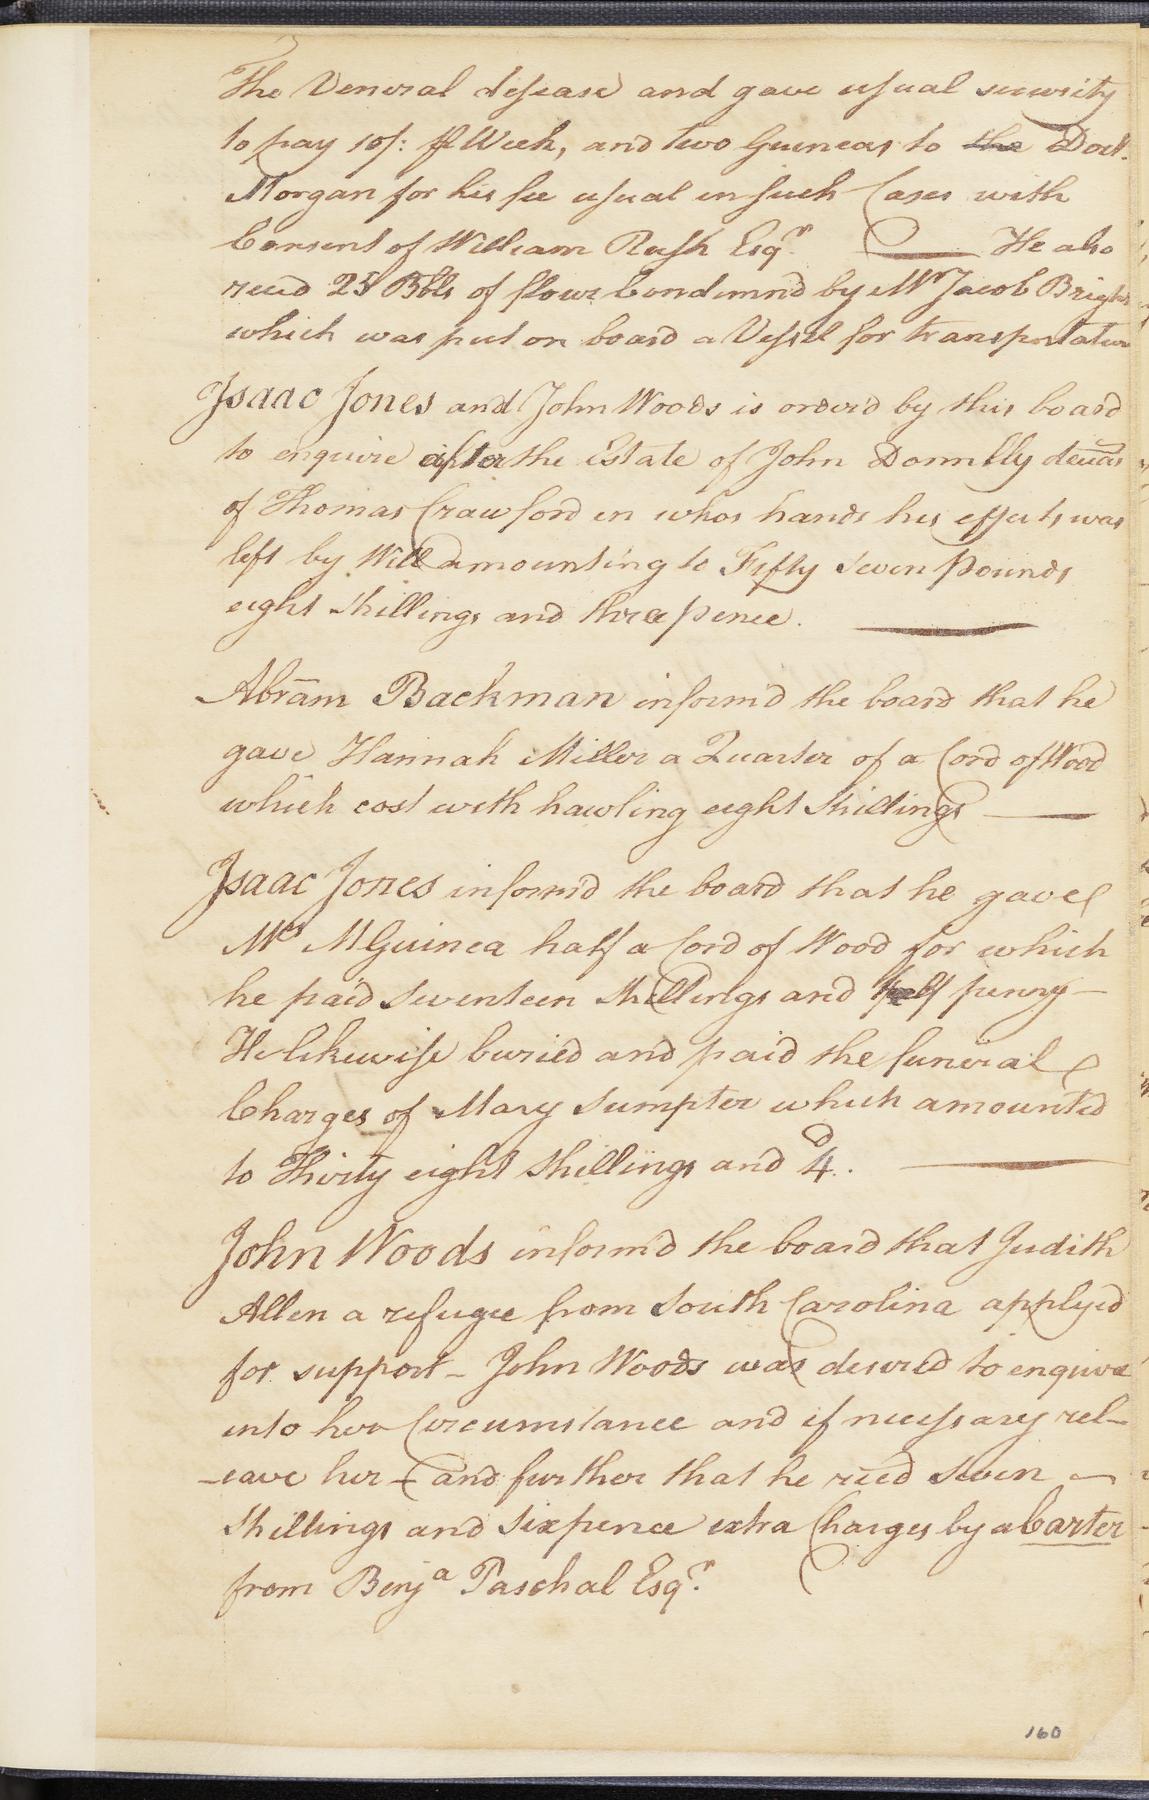 The Veneral disease and gave usual security
to pay 10/: ⅌ Week, and two Guineas to the Doct.
Morgan for his fee usual in such Cases with
Consent of William Rush Esqr. He also
reced 25 Bbls of flour Condemnd by Mr Jacob Bright
which was put on board a Vessel for transportation
Isaac Jones and John Woods is orderd by this board
to enquire after the Estate of John Donnelly
of Thomas Crawford in whos hands his effects was
left by Will amounting to Fifty Seven Pounds
eight Shillings and three pence.
Abram Backman inform'd the board that he
gave Hannah Miller a Quarter of a Cord of Wood
which cost with hawling eight Shillings
Isaac Jones inform'd the board that he gave
Mrs McGuinea half a Cord of Wood for which
he paid seventeen Shillings and half penny
He likewise buried and paid the funeral
Charges of Mary Sumpter which amounted
to Thirty eight Shillings and 4d.
John Woods inform'd the board that Judith
Allen a refugee from South Carolina applyed
for support - John Woods was desired to enquire
into her Circumstance and if necessary rel-
-eave her - and further that he reced seven
Shillings and Sixpence extra Charges by a Carter
from Benja Paschal Esqr.
160